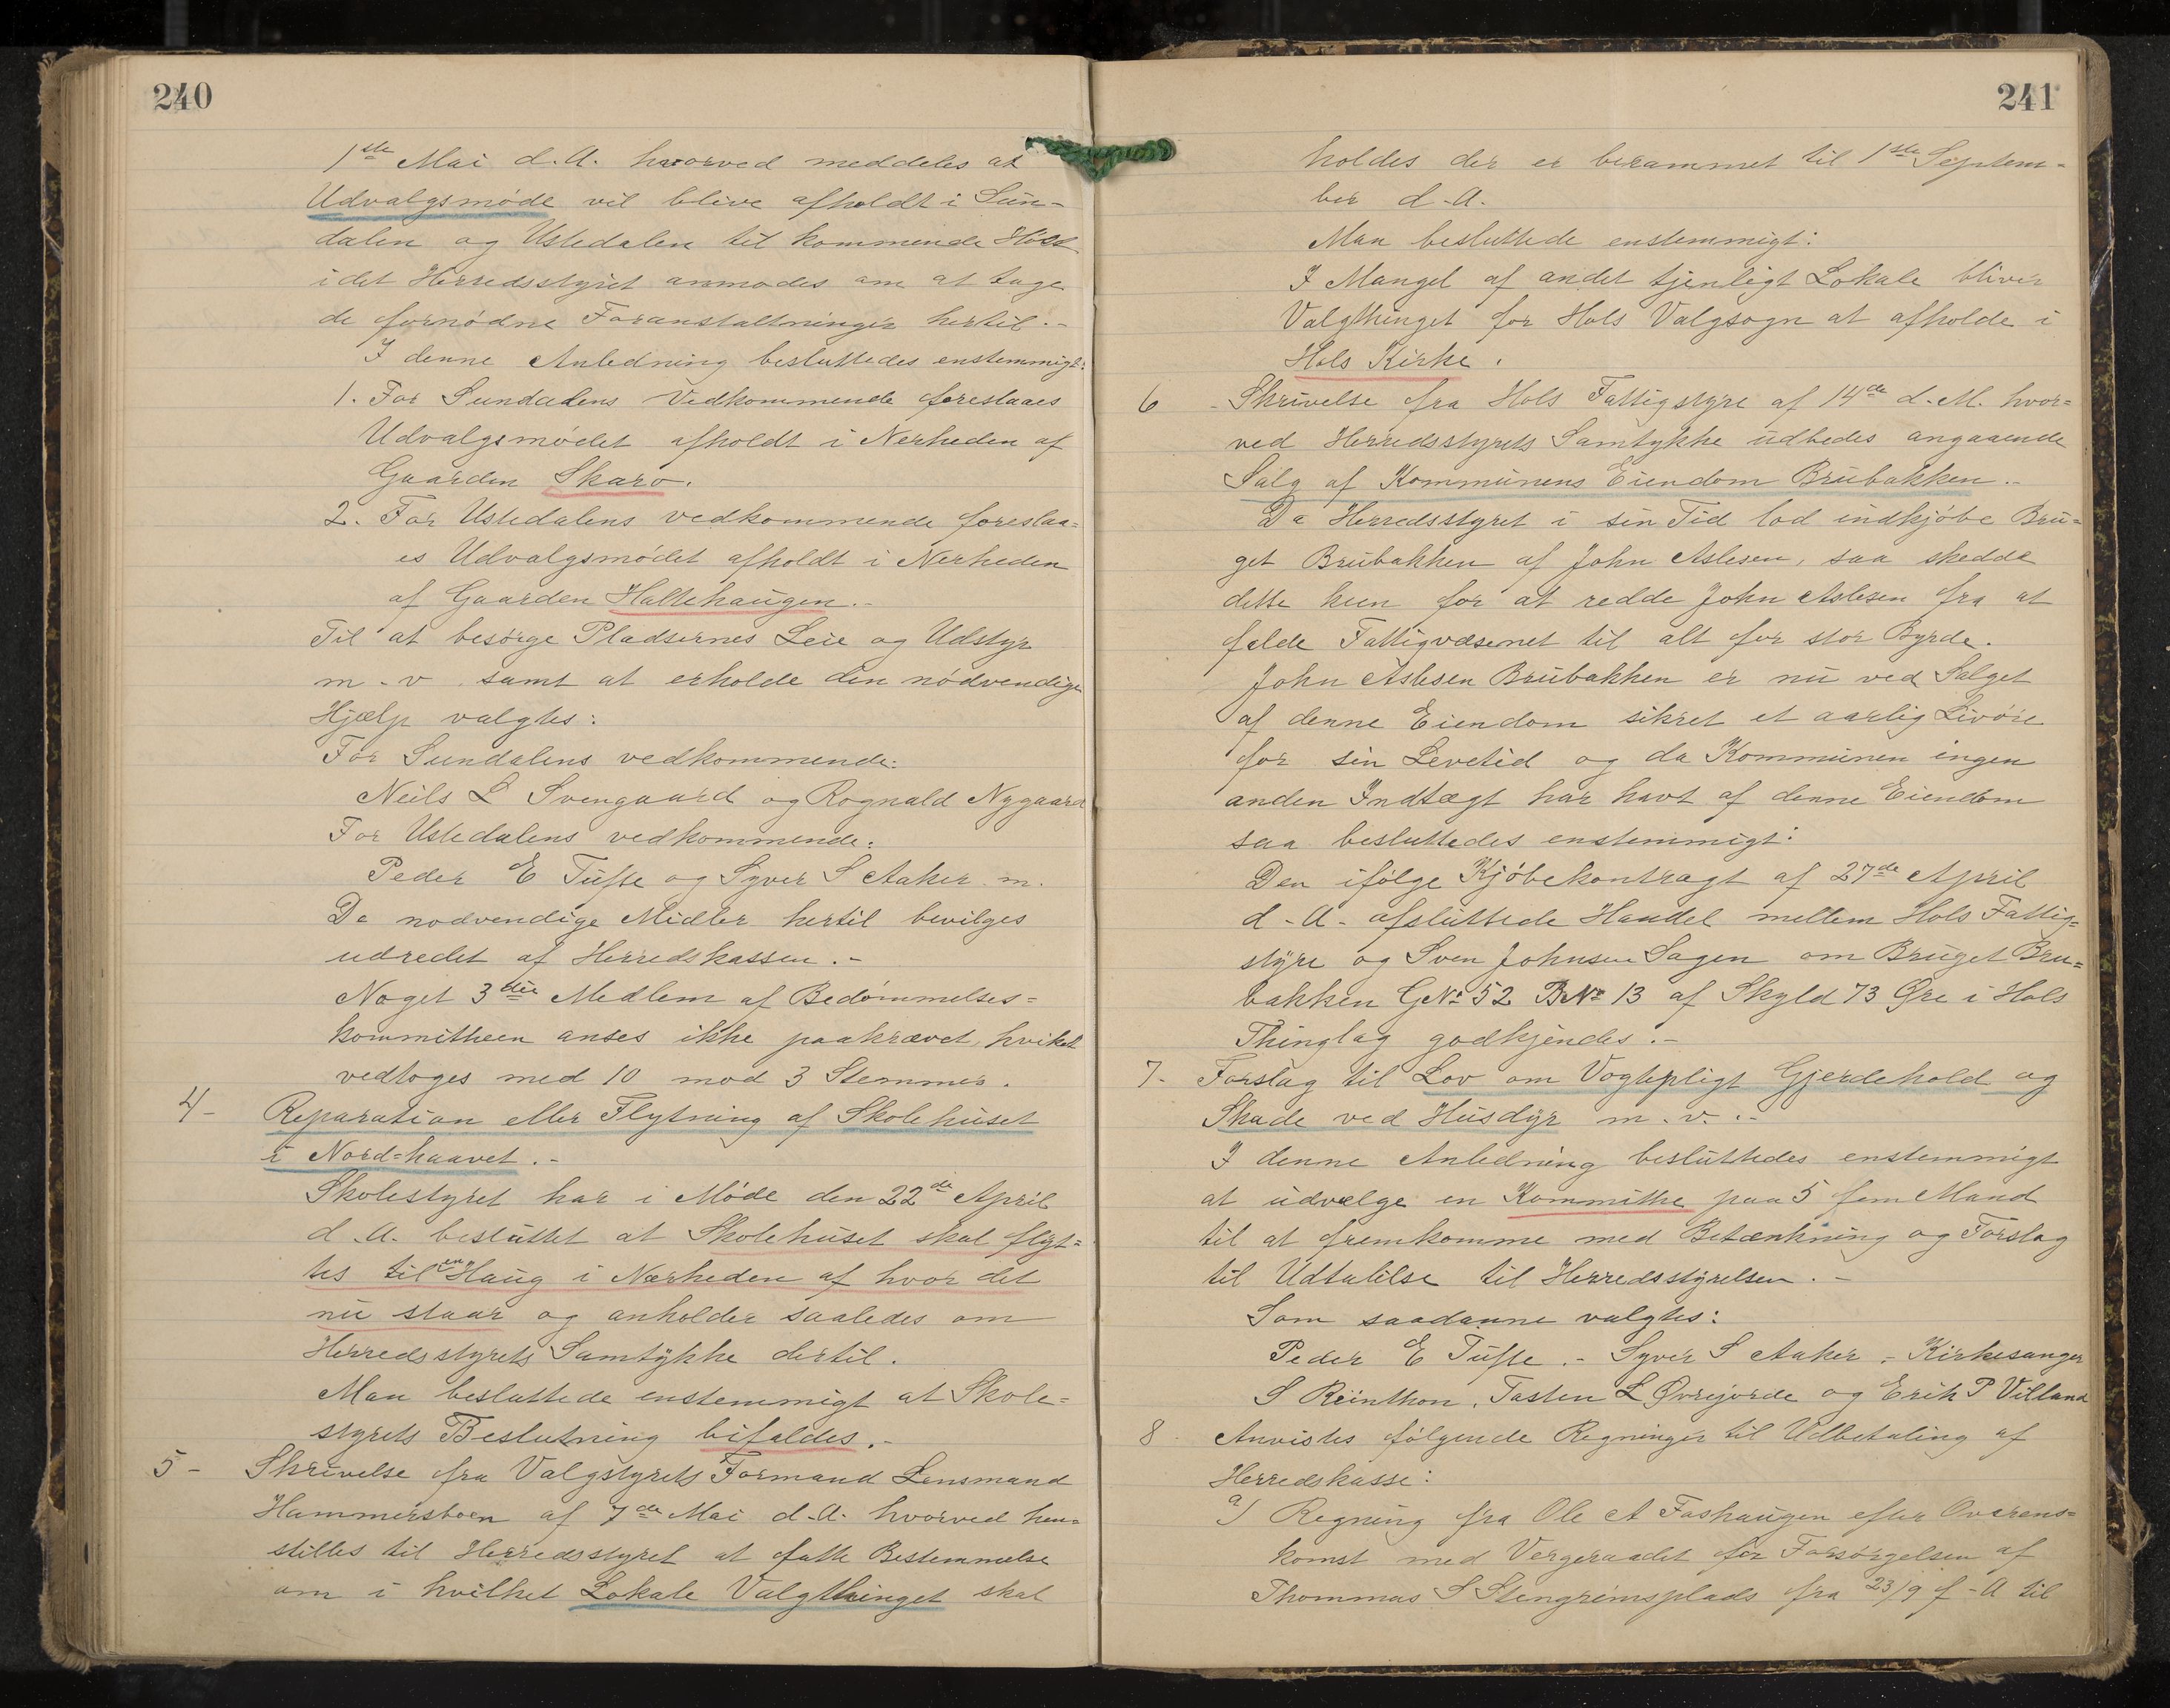 240
1ste Mai d.A. hvorved meddeles at
Udvalgsmøde vil blive afholdt i Sun-
dalen og Ustedalen til kommende Høst
idet Herredsstyret anmodes om at tage
de fornødne Foranstaltninger hertil.-
I denne Anledning besluttedes enstemmigt:
1. For Sundalens Vedkommende foreslaaes
Udvalgsmødet afholdt i Nerheden af
Gaarden Skaro.
2. For Ustedalens vedkommende foreslaa=
es Udvalgsmødet afholdt i Nerheden
af Gaarden Haltehaugen.-
Til at besørge Pladsernes Leie og Udstyr
m.v. samt at erholde den nødvendige
Hjælp valgtes:
For Sundalens vedkommende:
Neils L Svengaard og Rognald Nygaard
For Ustedalens vedkommende:
Peder E Tufte og Syver S Aaker m.
De nødvendige Midler hertil bevilges
udredet af Herredskassen.-
Noget 3die Medlem af Bedømmelses=
kommitheen anses ikke paakrævet, hviket
vedtoges med 10 mod 3 Stemmer.
4- Reparation eller Flytning af Skolehuset
i Nord=haavet.-
Skolestyret har i Møde den 22de April
d.A. besluttet at Skolehuset skal flyt=
tes til en Haug i Nærheden af hvor det
nu staar og anholder saaledes om
Herredsstyrets Samtykke dertil.
Man besluttede enstemmigt at Skole=
styrets Beslutning bifaldes.-
5- Skrivelse fra Valgstyrets Formand Lensmand
Hammersboen af 7de Mai d.A. hvorved hen=
stilles til Herredsstyret at fatte Bestemmelse
om i hvilket Lokale Valgthinget skal
241
holdes der er berammet til 1ste Septem=
ber d.A.
Man besluttede enstemmigt:
I Mangel af andet tjenligt Lokale bliver
Valgthinget for Hols Valgsogn at afholde i
Hols Kirke.
6 - Skrivelse fra Hols Fattigstyre af 14de d.M. hvor=
ved Herredsstyrets Samtykke udbedes angaaende
Salg af Kommunens Eiendom Brubakken.-
Da Herredsstyret i sin Tid lod indkjøbe Bru=
get Brubakken af John Aslesen, saa skedde
dette kun for at redde John Aslesen fra at
falde Fattigvæsenet til alt for stor Byrde.
John Aslesen Brubakken er nu ved Salget
af denne Eiendom sikret et aarlig Livøre
for sin Levetid og da Kommunen ingen
anden Indtægt har havt af denne Eiendom
saa besluttedes enstemmigt:
Den ifølge Kjøbekontragt af 27de April
d.A. afsluttede Handel mellem Hols Fattig=
styre og Sven Johnsen Sagen om Bruget Bru=
bakken GNo 52 BNo 13 af Skyld 73 Øre i Hols
Thinglag godkjendes.-
7- Forslag til Lov om Vogtepligt Gjerdehold og
Skade ved Husdyr m.v.-
I denne Anledning besluttedes enstemmigt
at udvælge en Kommithe paa 5 fem Mand
til at fremkomme med Betænkning og Forslag
til Udtalelse til Herredsstyrelsen.-
Som saadanne valgtes:
Peder E Tufte.- Syver S Aaker.- Kirkesanger
S Reinthon, Tosten L Øvrejorde og Erik P Villand
8- Anvistes følgende Regninger til Udbetaling af
Herredskasse:
a) Regning fra Ole A Foshaugen efter Overens=
komst med Vergeraadet for Forsørgelsen af
Thommas S Stengrimsplads fra 23/9 f.A til